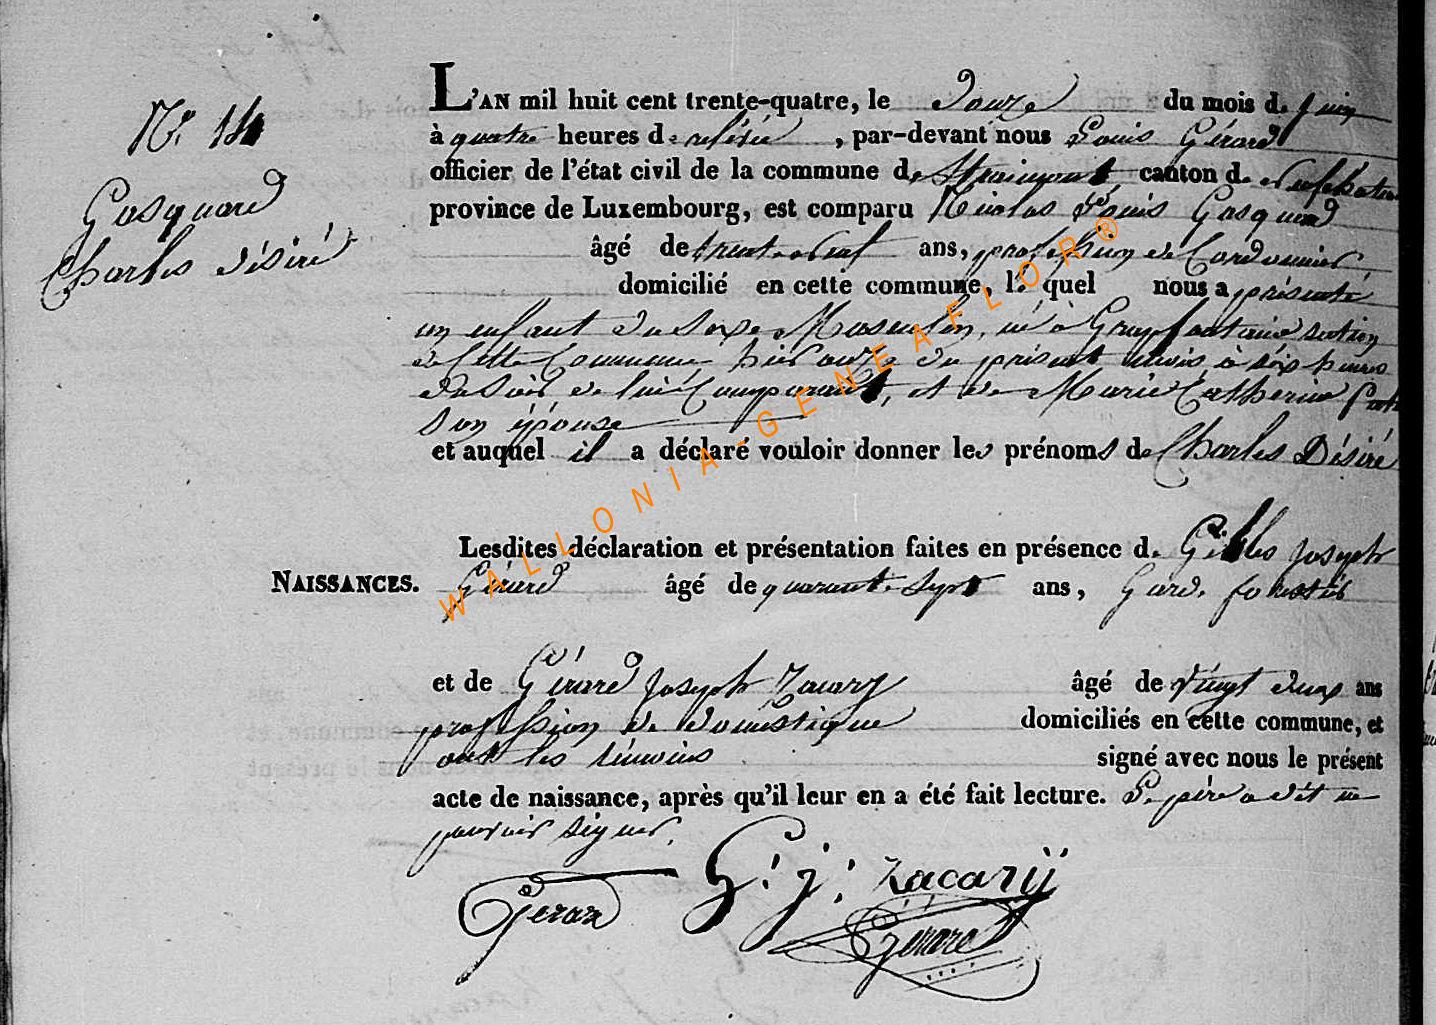 N° 14
Gasquard
Charles désiré
L'AN mil huit cent trente-quatre, le Douze du mois de juin
à quatre heures de relévée, par-devant nous Louis Gérard
officier de l'état civil de la commune de Straimont canton de
province de Luxembourg, est comparu Nicolas Louis Gasquard
âgé de trente neuf ans, profession de Cordonnier
domicilié en cette commune, le quel nous a présenté
un enfant du Sexe Masculin, né à Grapfontaine section
de Cette Commune hier onze du présent mois, à six heures
du Soir, de lui Comparant, et de Marie Catherine
Son épouse
et auquel il a déclaré vouloir donner les prénoms de Charles Désiré
Lesdites déclaration et présentation faites en présence de Gilles Joseph
NAISSANCES.
Gérard âgé de quarante Sept ans, Garde forestier
et de Gérard Joseph Zacary âgé de vingt deux ans
profession de domestique domiciliés en cette commune, et
ont les témoins signé avec nous le présent
acte de naissance, après qu'il leur en a été fait lecture. Le père a dit ne
pouvoir signer.
Gerard G: j: Zacarÿ
Gerard
WALLONIA-GENEAFLOR®